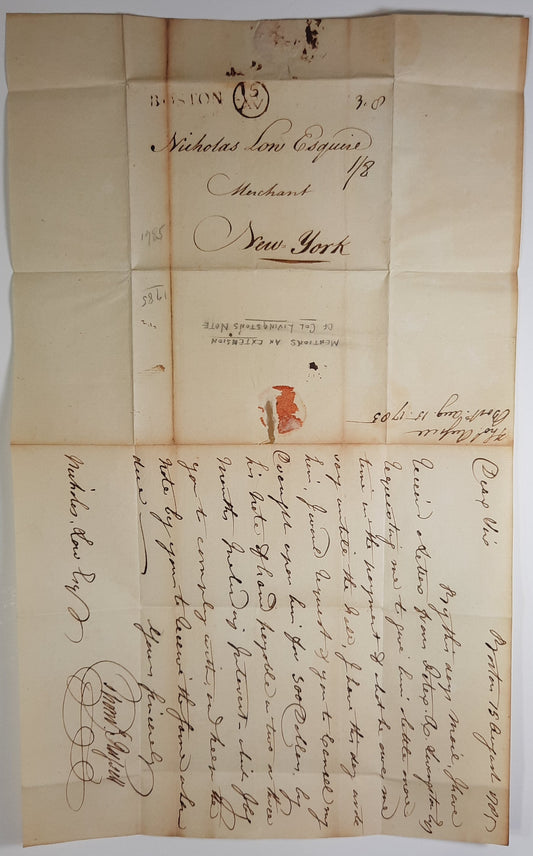 BOSTON 15 AU
3.8
Nicholas Low Esquire
1/8
Merchant
New York
1785
1785
MENTIONS AN EXTENSION
OF COL LIVINGSTON'S NOTE
Thos Russell
Bost: Aug 15: 1785
Boston 15 August 1785
Dear Sir
By this day Mail, I have
receiv'd letters from Livingston Esq
requesting me to give him a little more
time in the payment of what he owes me
say untill the I have this day wrote
him, I would request of you to cancel my
Draught upon him for 300 Dollars, by
his Note of hand payable in two or three
Months Including Interest, which I beg
you to comply with, and keep the
Note by you to receive the same when
due
Yours Sincerely
Thomas Russell
Nicholas Low Esqr